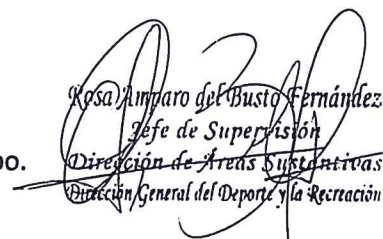 Rosa Amparo del Busto Fernández
Jefe de Supervisión
po. Dirección de Áreas Sustantivas
Dirección General del Deporte y la Recreación